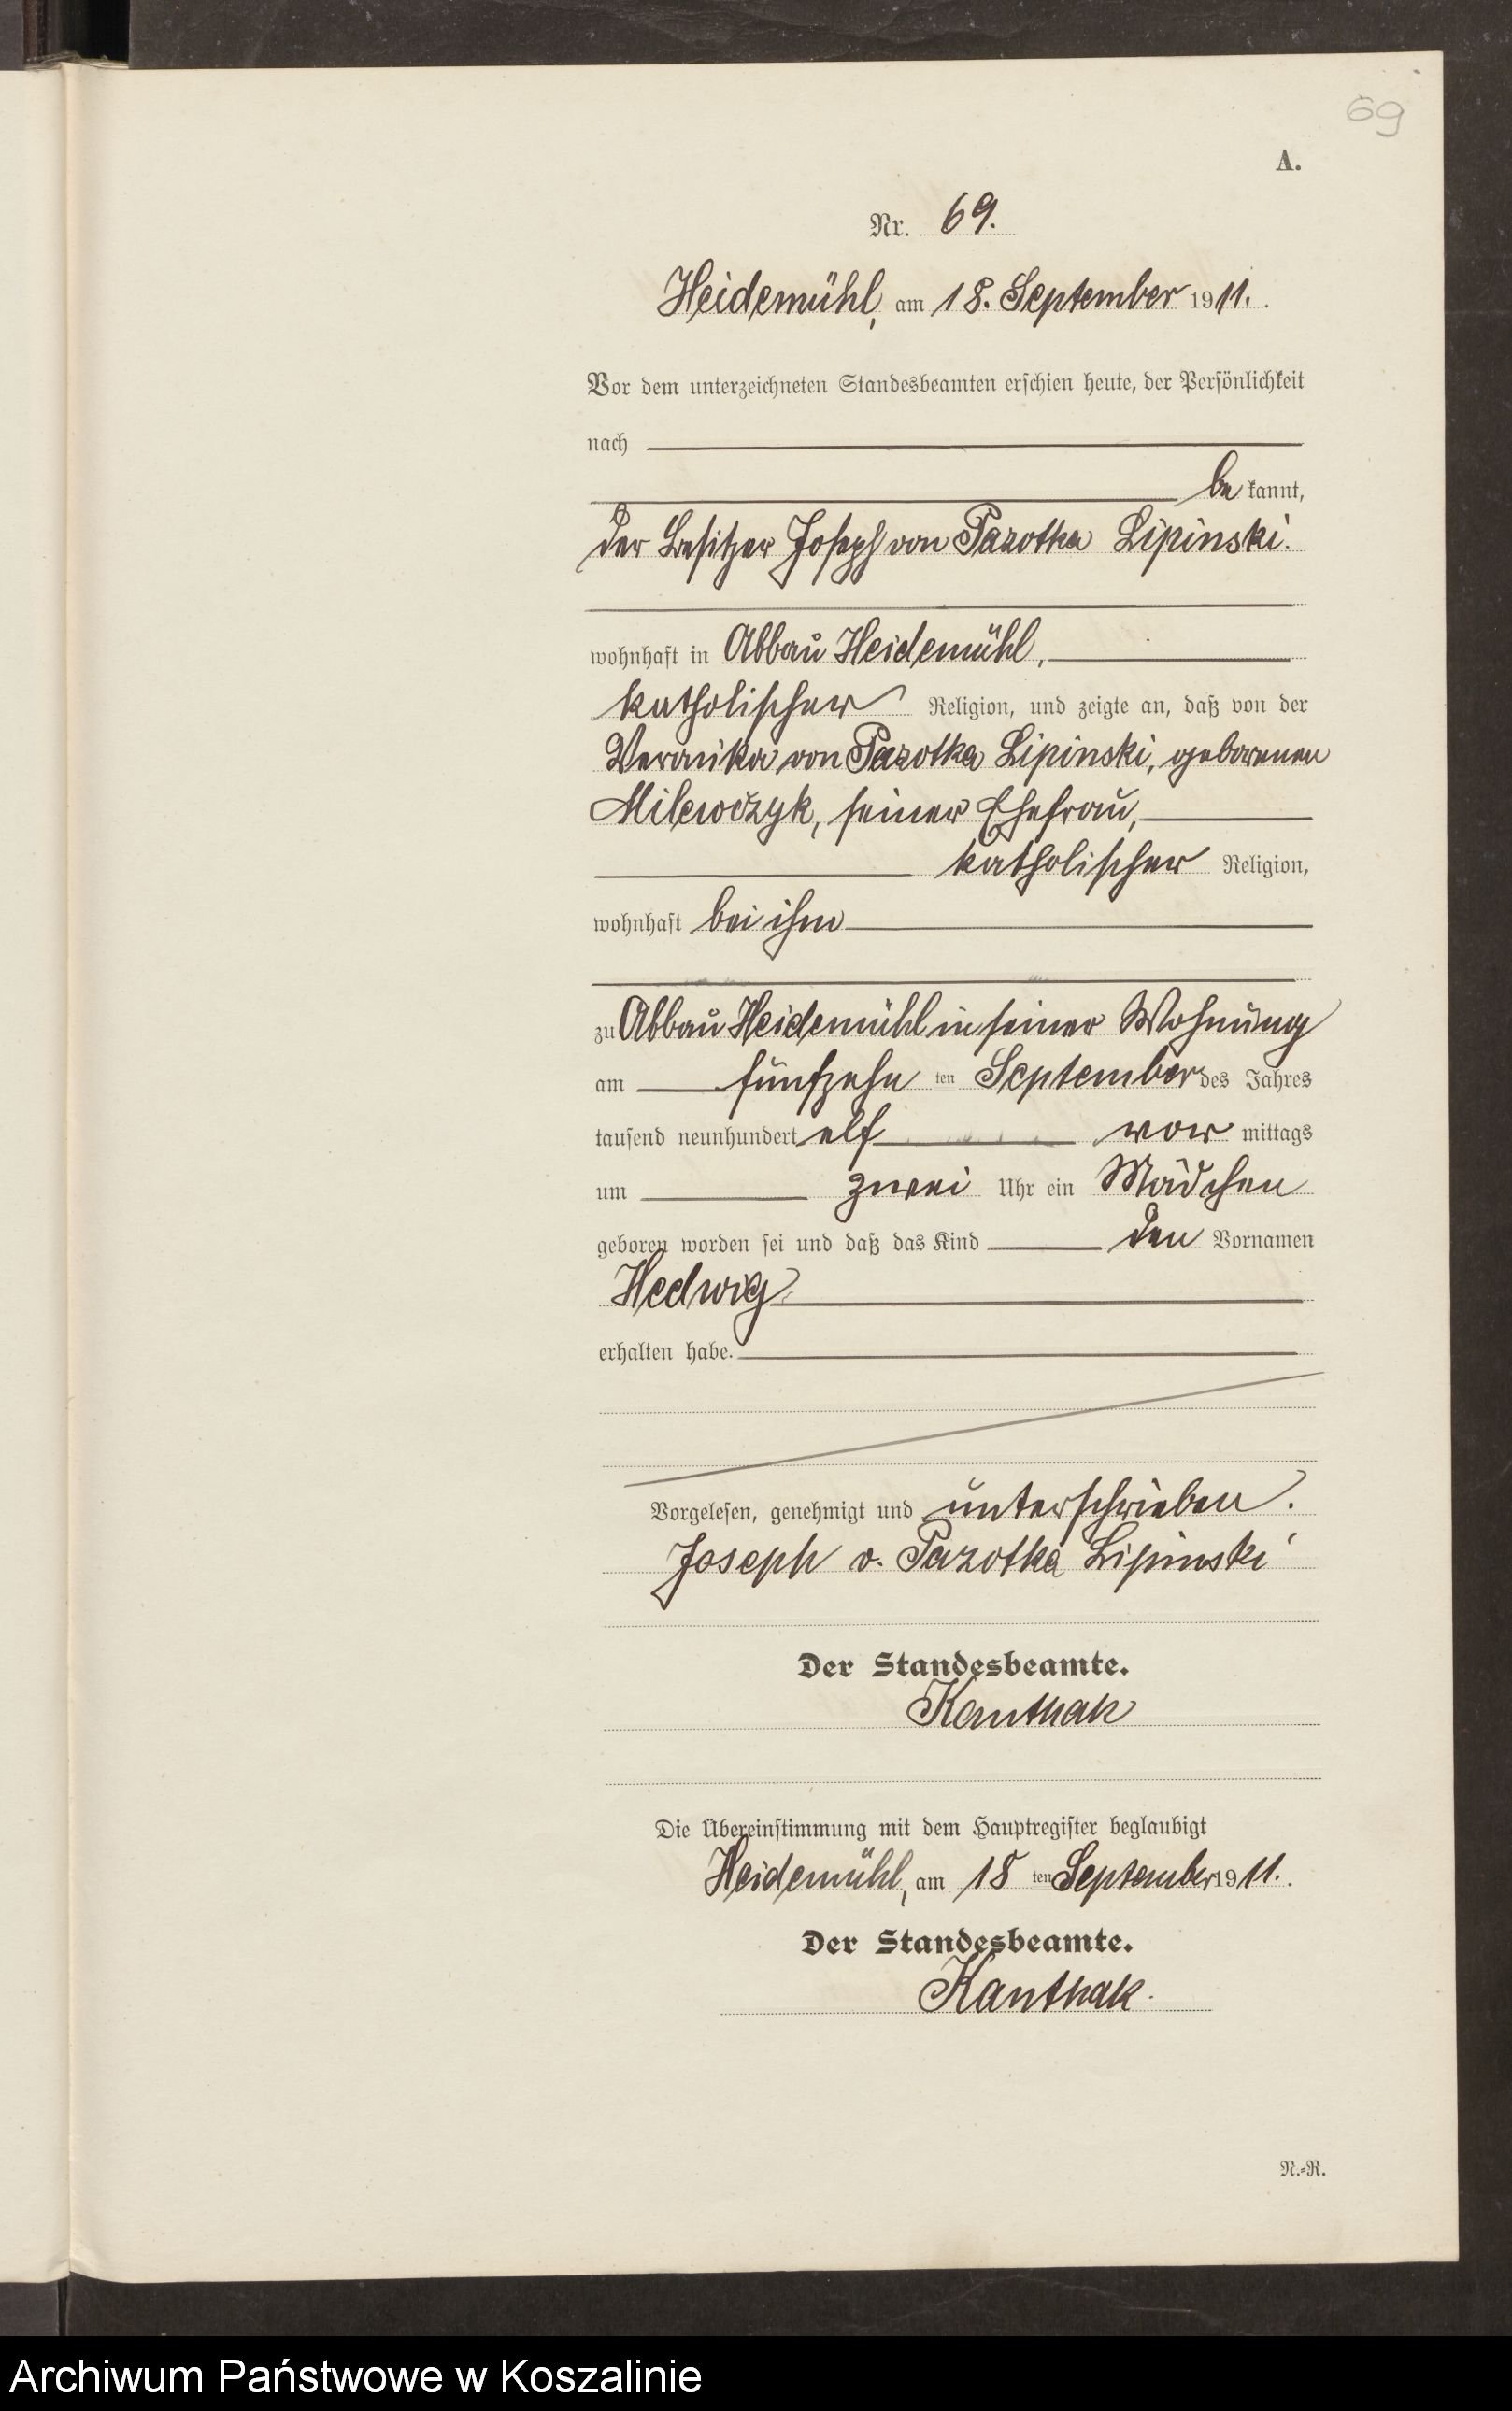 69
A.
Nr. 69.
Heidemühl, am 18. September 1911.
Vor dem unterzeichneten Standesbeamten erschien heute, der Persönlichkeit
nach
be kannt,
der Besitzer Joseph von Pazotka Lipinski.
wohnhaft in Abbau Heidemühl,
katholischer Religion, und zeigte an, daß von der
Veronika von Pazotka Lipinski, geborenen
Milewczyk, seiner Ehefrau,
katholischer Religion,
wohnhaft bei ihm
zu Abbau Heidemühl in seiner Wohnung
am fünfzehn ten September des Jahres
tausend neunhundert elf vor mittags
um zwei Uhr ein Mädchen
geboren worden sei und daß das Kind den Vornamen
Hedwig
erhalten habe.
Vorgelesen, genehmigt und unterschrieben.
Joseph v. Pazotka Lipinski
Der Standesbeamte.
Kanthak
Die Übereinstimmung mit dem Hauptregister beglaubigt
Heidemühl, am 18 ten September 1911.
Der Standesbeamte.
Kanthak.
N.-R.
Archiwum Państwowe w Koszalinie